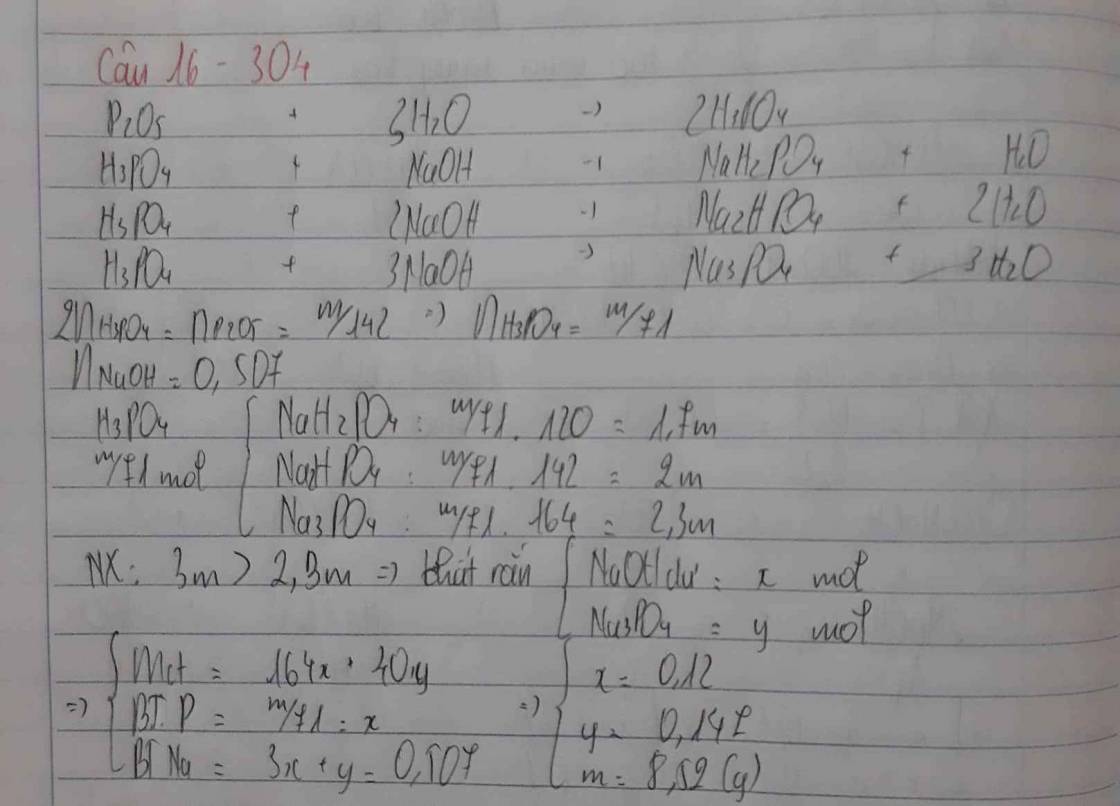 Câu 16 - 304
P2O5 + 3H2O -> 2H3PO4
H3PO4 + NaOH -> NaH2PO4 + H2O
H3PO4 + 2NaOH -> Na2HPO4 + 2H2O
H3PO4 + 3NaOH -> Na3PO4 + 3H2O
2nH3PO4 = nP2O5 = m/142 => nH3PO4 = m/71
nNaOH = 0,507
H3PO4 { NaH2PO4 : m/71 . 120 = 1,7m
m/71 mol Na2HPO4 : m/71 . 142 = 2m
Na3PO4 : m/71 . 164 = 2,3m
NX: 3m > 2,3m => chất rắn { NaOH dư : x mol
Na3PO4 = y mol
{ mct = 164x + 40y { x = 0,12
=> BT.P = m/71 = x => y = 0,147
BT Na = 3x + y = 0,507 m = 8,52 (g)